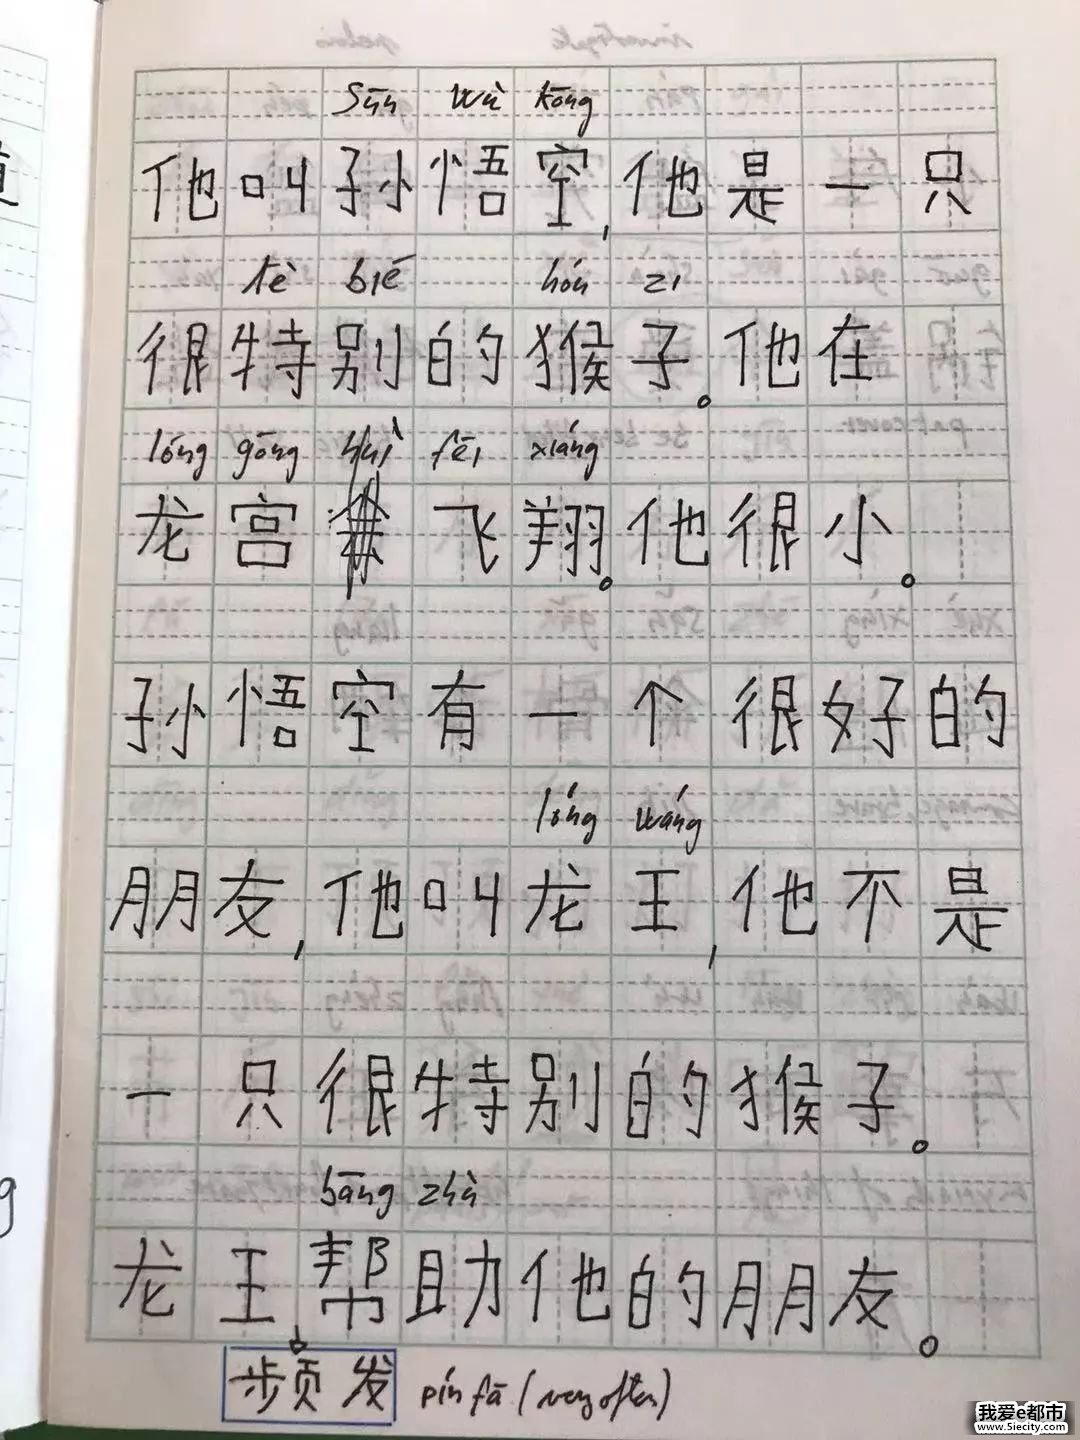 Sūn wù kōng
他叫孙悟空,他是一只
tè bié hón zi
很特别的猴子。他在
lóng gōng huì fēi xiáng
龙宫飞翔。他很小。
孙悟空有一个很好的
lóng wáng
朋友,他叫龙王,他不是
一只很特别的猴子。
bāng zhù
龙王帮助他的朋友。
频发 pín fā (very often)
我爱e都市
www.5iecity.com